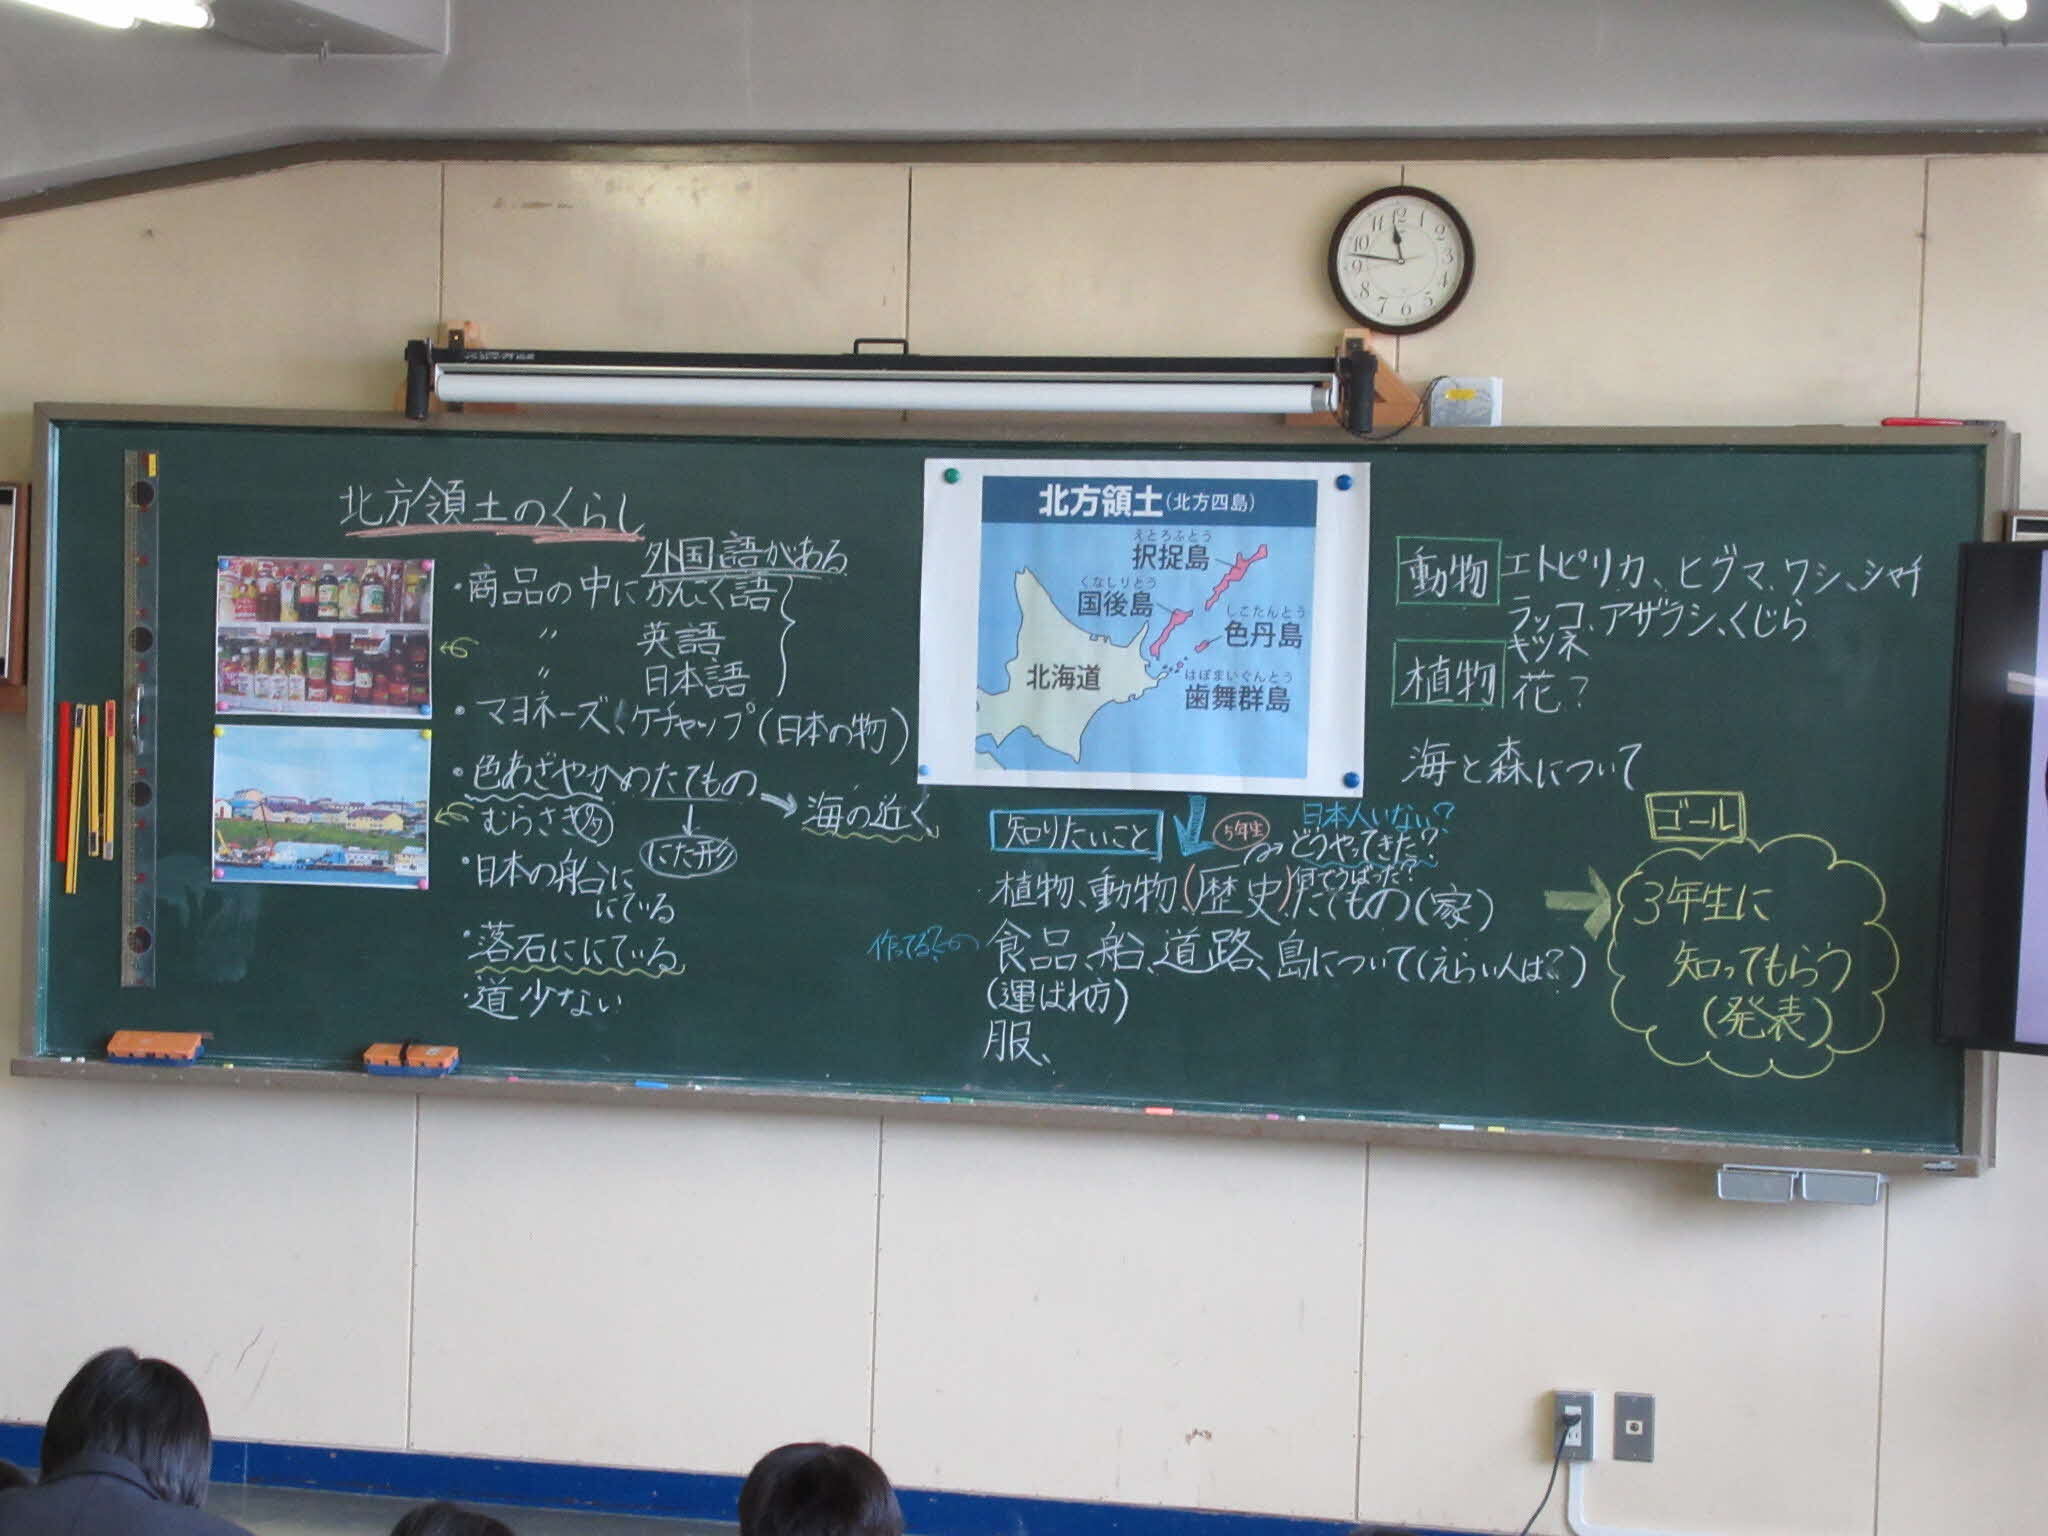 北方領土のくらし
外国語がある
・商品の中にかんこく語
〃 英語
〃 日本語
・マヨネーズ、ケチャップ(日本の物)
・色あざやかのたてもの
→海の近く
むらさき 多
↓
にた形
・日本の船に
にている
・落石ににている
・道少ない
北方領土(北方四島)
えとろふとう
択捉島
くなしりとう
国後島
しこたんとう
色丹島
北海道
はぼまいぐんとう
歯舞群島
知りたいこと
5年生
日本人いない?
どうやってきた?
何でうばった?
植物、動物、(歴史)、たてもの(家)
作ってる?
食品、船、道路、島について(えらい人は?)
(運ばれ方)
服、
動物 エトピリカ、ヒグマ、ワシ、シャチ
ラッコ、アザラシ、くじら
キツネ
植物 花?
海と森について
ゴール
3年生に
知ってもらう
(発表)
11 12 1
10 2
9 3
8 4
7 6 5